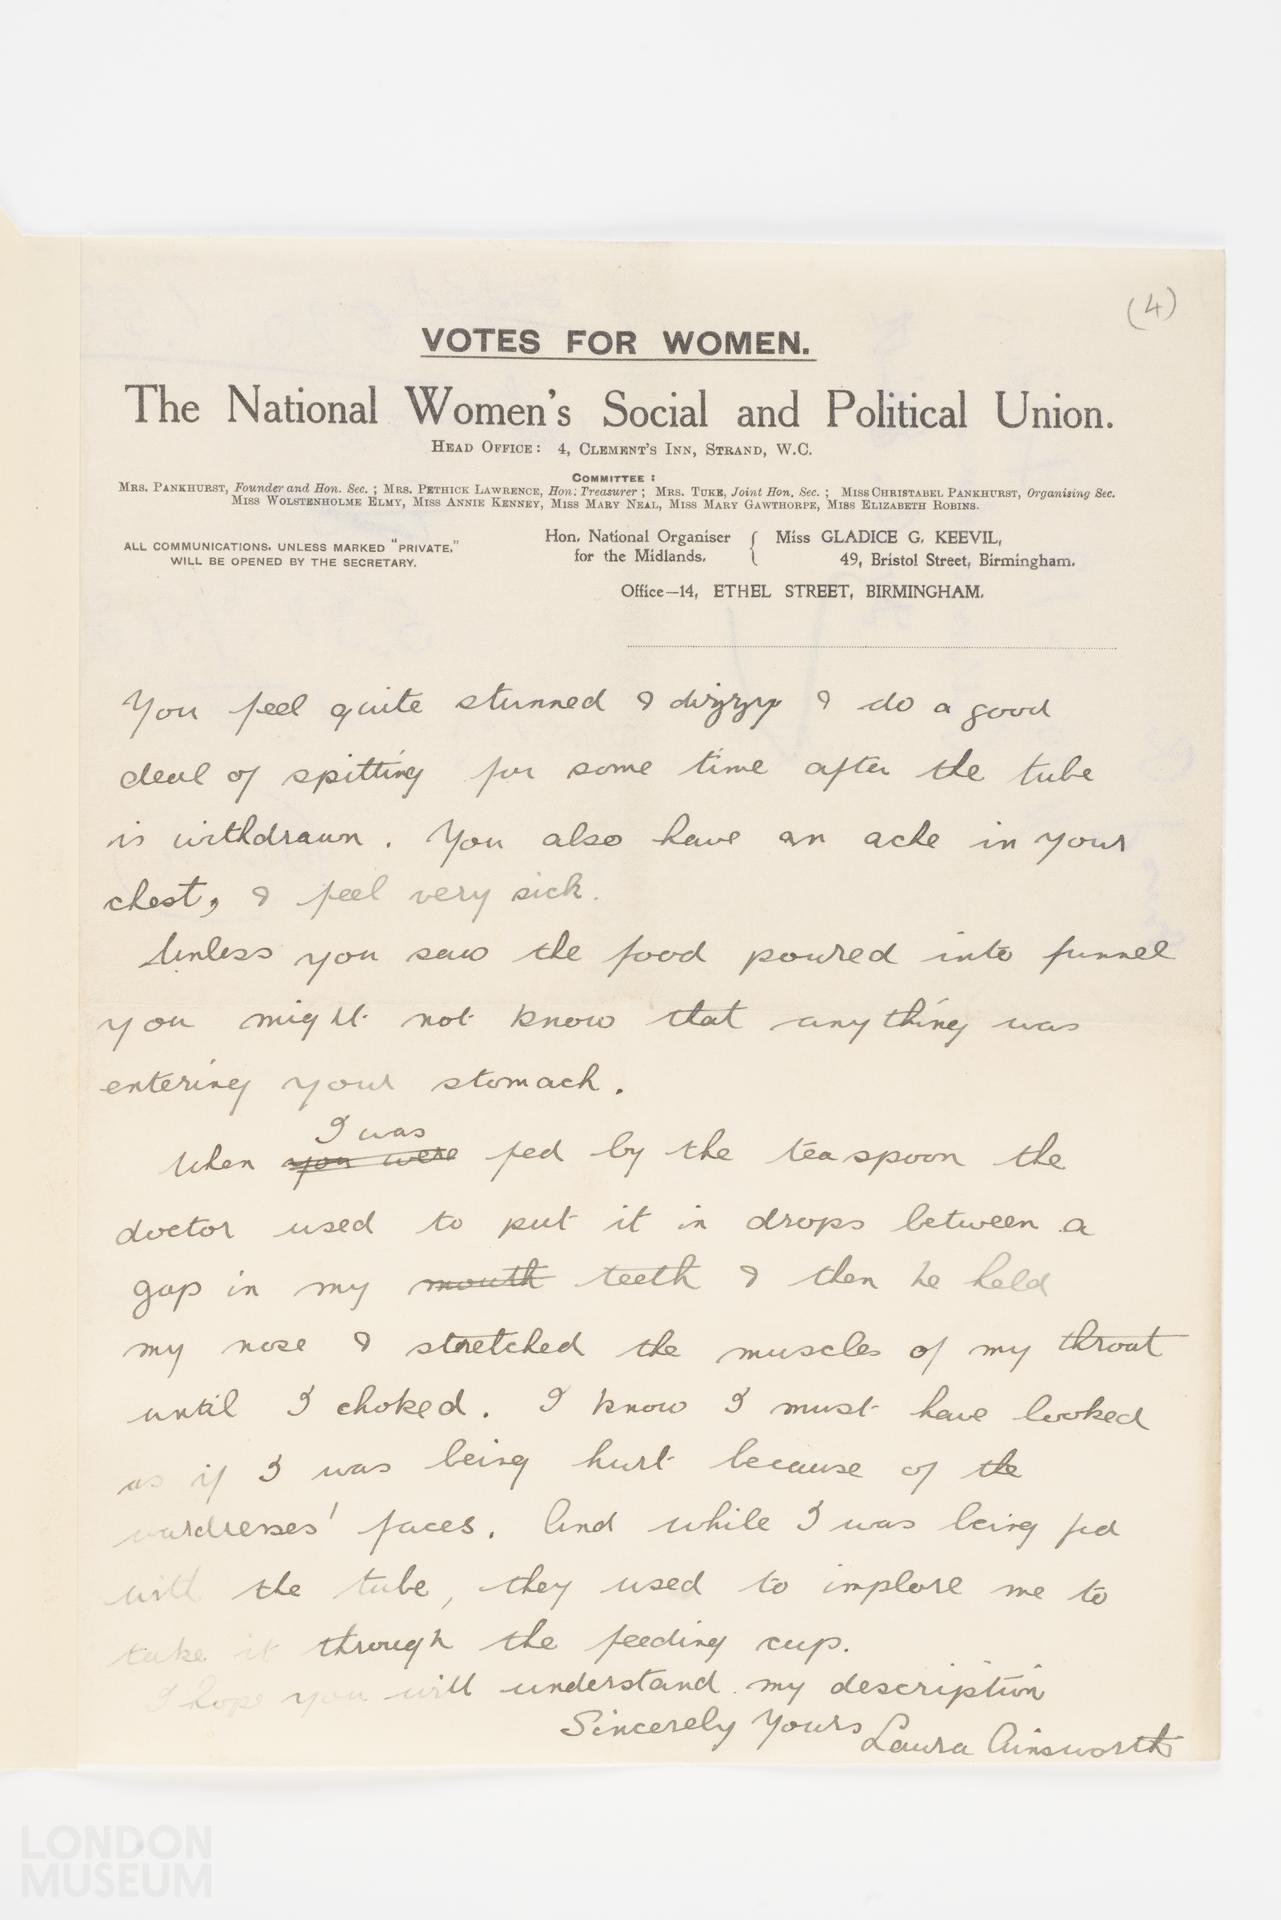 (4)
VOTES FOR WOMEN.
The National Women's Social and Political Union.
HEAD OFFICE: 4, CLEMENT'S INN, STRAND, W.C.
COMMITTEE:
MRS. PANKHURST, Founder and Hon. Sec.; MRS. PETHICK LAWRENCE, Hon. Treasurer; MRS. TUKE, Joint Hon. Sec.; MISS CHRISTABEL PANKHURST, Organising Sec.
MISS WOLSTENHOLME ELMY, MISS ANNIE KENNEY, MISS MARY NEAL, MISS MARY GAWTHORPE, MISS ELIZABETH ROBINS.
ALL COMMUNICATIONS, UNLESS MARKED "PRIVATE,"
WILL BE OPENED BY THE SECRETARY.
Hon. National Organiser
for the Midlands.
{ Miss GLADICE G. KEEVIL,
49, Bristol Street, Birmingham.
Office—14, ETHEL STREET, BIRMINGHAM.
You feel quite stunned & dizzy & do a good
deal of spitting for some time after the tube
is withdrawn. You also have an ache in your
chest, & feel very sick.
Unless you saw the food poured into funnel
you might not know that anything was
entering your stomach.
I was
When you were fed by the teaspoon the
doctor used to put it in drops between a
gap in my mouth teeth & then he held
my nose & stretched the muscles of my throat
until I choked. I know I must have looked
as if I was being hurt because of the
wardresses' faces. And while I was being fed
with the tube, they used to implore me to
take it through the feeding cup.
I hope you will understand my description
Sincerely Yours Laura Ainsworth
LONDON
MUSEUM